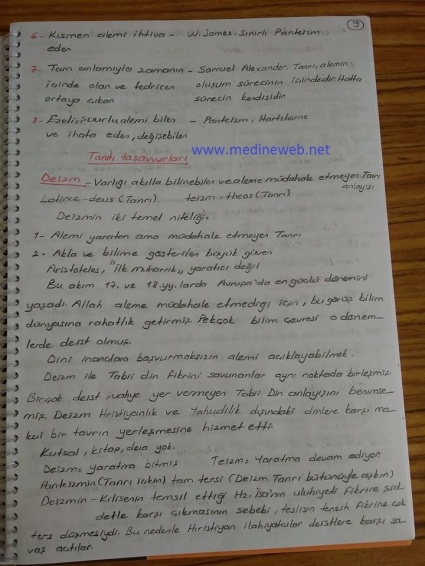 9
6- Kısmen alemi ihtiva - W. James. Sınırlı Panteizm
eden
7- Tam anlamıyla zamanın - Samuel Alexander. Tanrı, alemin
içinde olan ve tedricen oluşum sürecinin içindedir. Hatta
ortaya çıkan sürecin kendisidir.
8- Ezeli, şuurlu, alemi bilen - Panteizm. Hartshorne
ve ihata eden, değişebilen
www.medineweb.net
Tanrı tasavvurları
Deizm - Varlığı akılla bilinebilen ve aleme müdahale etmeyen Tanrı
anlayışı
Latince - deus (Tanrı) teizm - theos (Tanrı)
Deizmin iki temel niteliği.
1- Alemi yaratan ama müdahale etmeyen Tanrı
2- Akla ve bilime gösterilen büyük güven
Aristoteles, "ilk muharrik", yaratıcı değil
Bu akım 17. ve 18. yy. larda Avrupa'da en güçlü dönemini
yaşadı. Allah aleme müdahale etmediği için, bu görüş bilim
dünyasına rahatlık getirmiş. Pekçok bilim çevresi o dönem-
lerde deist olmuş.
Dini inanclara başvurmaksızın alemi açıklayabilmek.
Deizm ile Tabii din fikrini savunanlar aynı noktada birleşmiş.
Birçok deist vahye yer vermeyen Tabii Din anlayışını benimse-
miş. Deizm Hristiyanlık ve Yahudilik dışındaki dinlere karşı ma-
kul bir tavrın yerleşmesine hizmet etti.
Kutsal, kitap, dua yok.
Deizm: yaratma bitmiş Teizm: Yaratma devam ediyor.
Panteizmin (Tanrı içkin) tam tersi (Deizm Tanrı bütünüyle aşkın)
Deizmin - Kilisenin temsil ettiği Hz. İsa'nın uluhiyeti fikrine şid-
detle karşı çıkmasının sebebi, teslisin tenzih fikrine çok
ters düşmesiydi. Bu nedenle Hristiyan ilahiyatcılar deistlere karşı sa-
vaş açtılar.